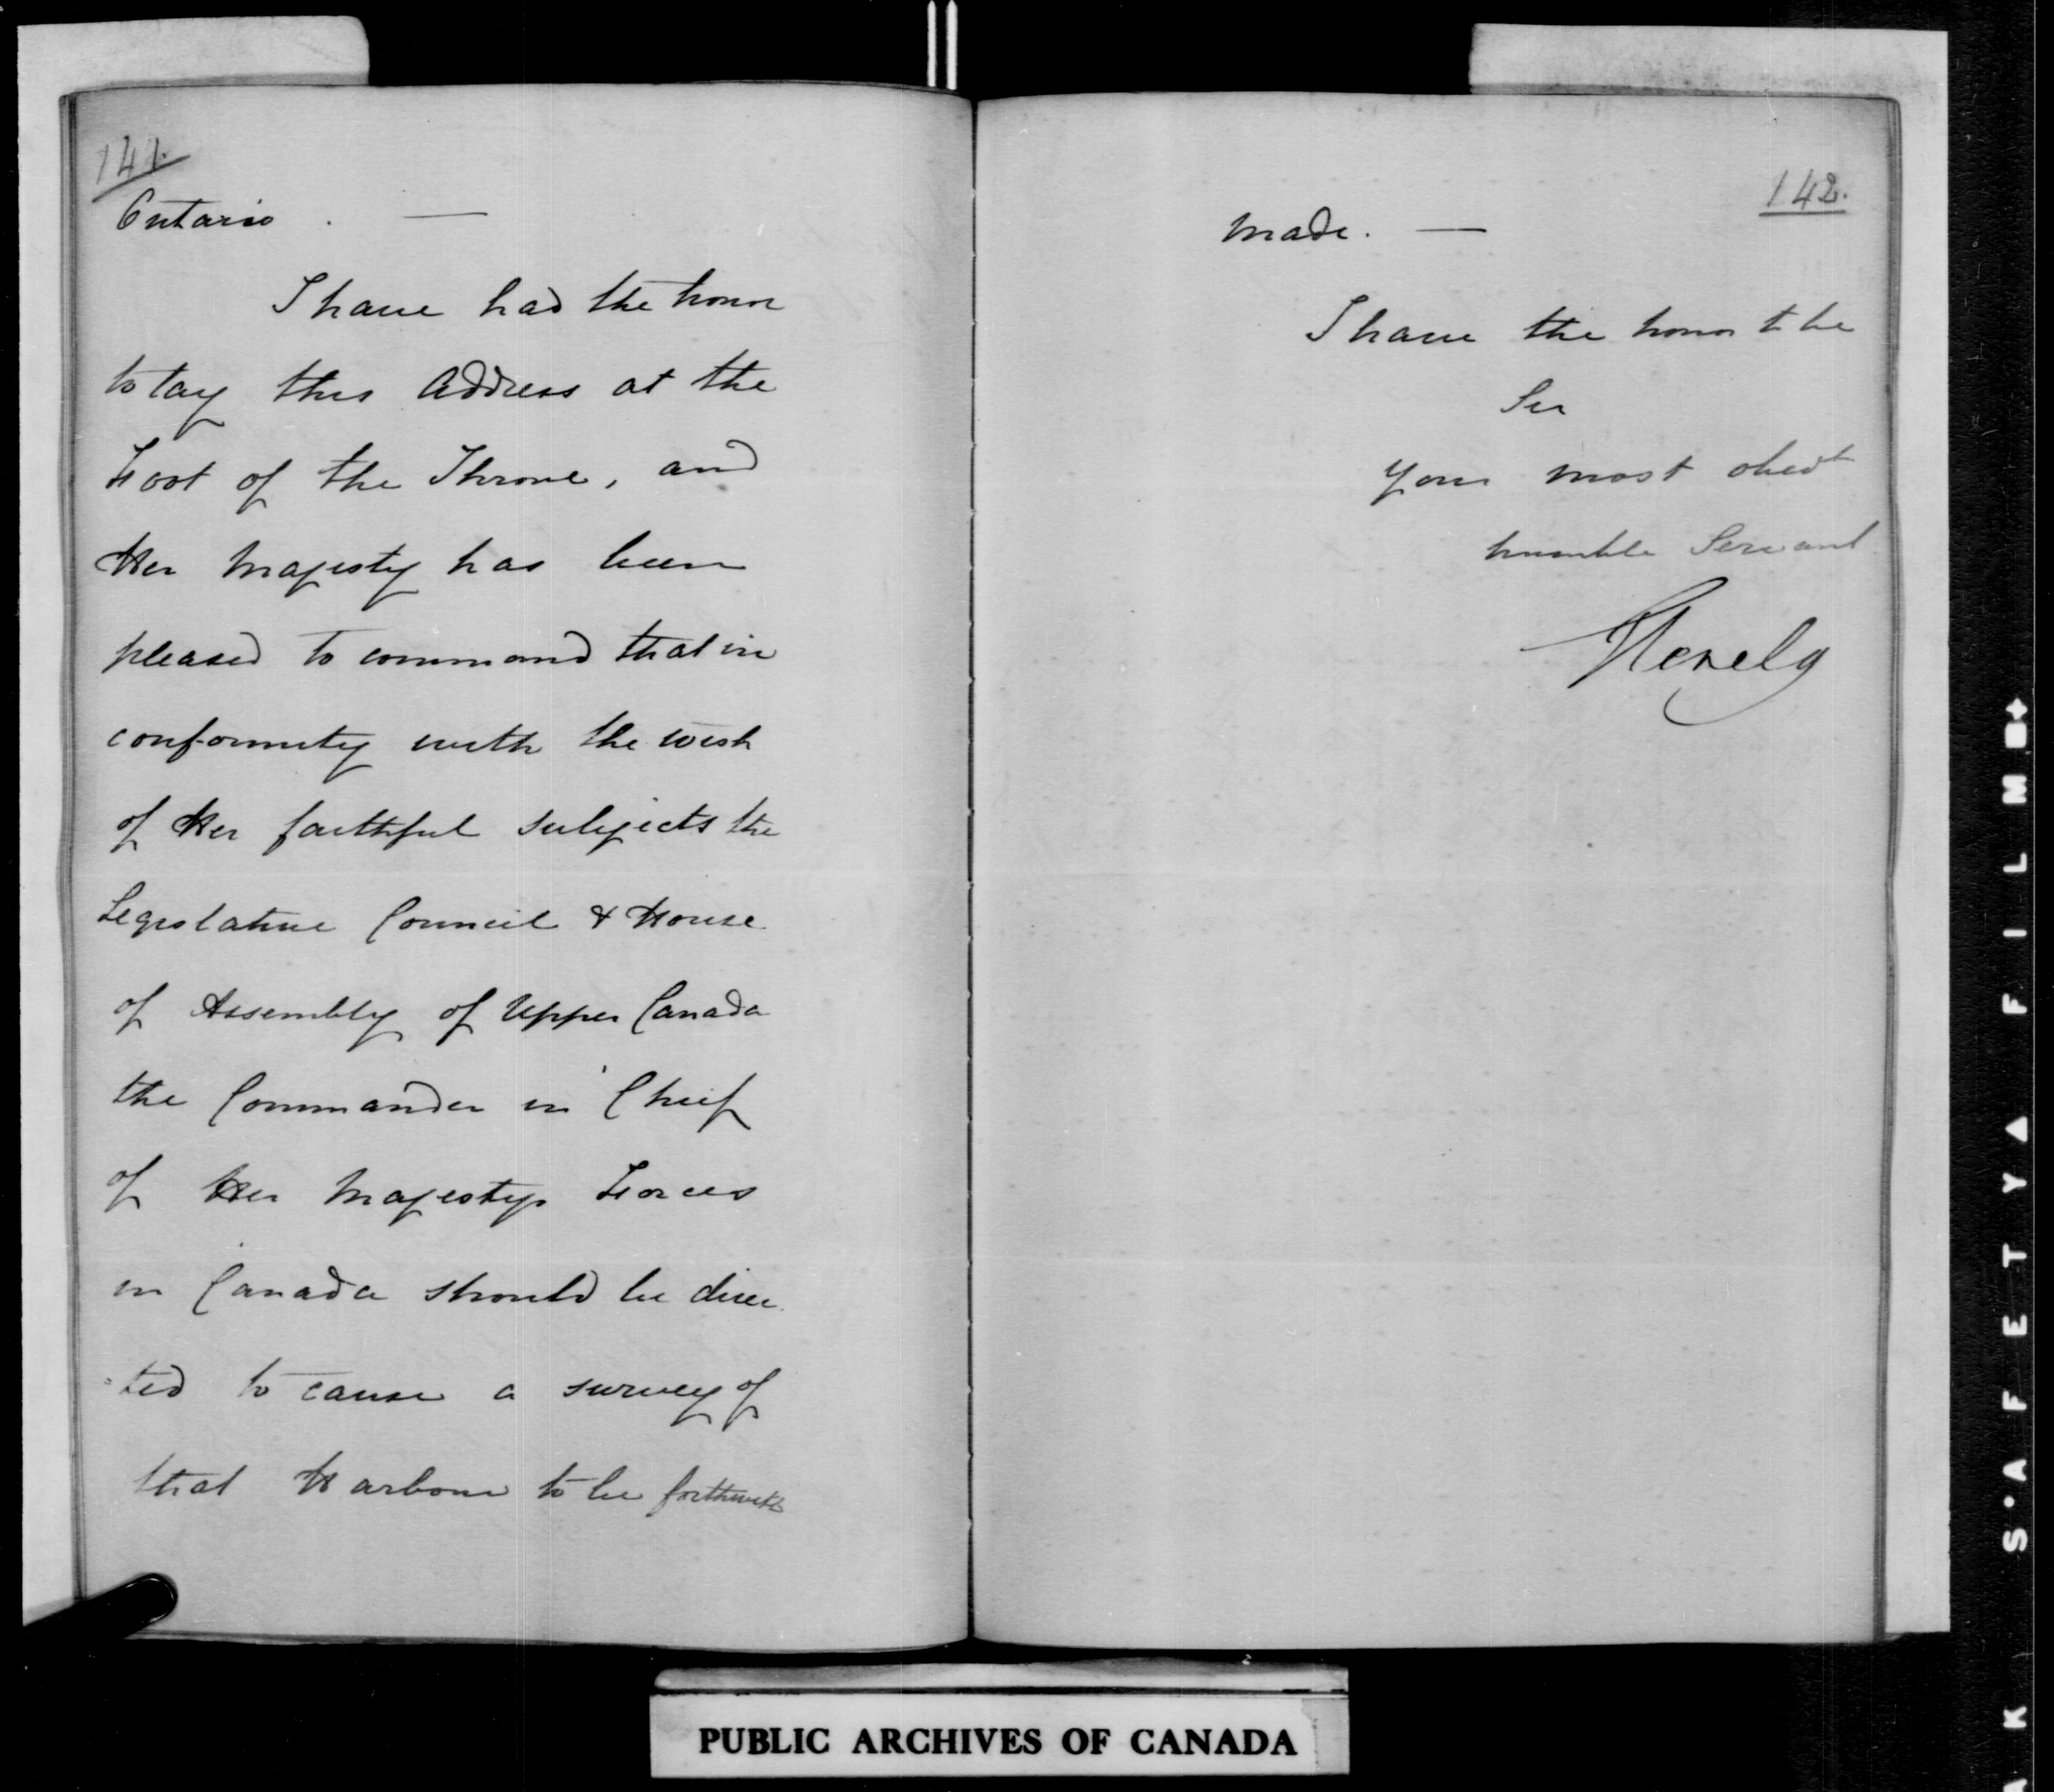 141.
Ontario. —
I have had the honor
to lay this Address at the
Foot of the Throne, and
Her Majesty has been
pleased to command that in
conformity with the wish
of Her faithful subjects the
Legislative Council & House
of Assembly of Upper Canada
the Commander in Chief
of Her Majestys Forces
in Canada should be direc
-ted to cause a survey of
that Harbour to be forthwith
142.
made. —
I have the honor to be
Sir
Your most obedt
humble Servant
Glenelg
PUBLIC ARCHIVES OF CANADA
K S·A F E T Y ▲ F I L M